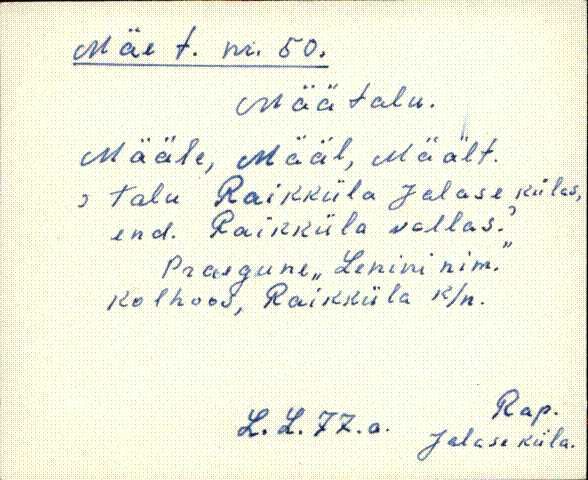 Mäe t. nr. 50.
Määtalu.
Määle, Määl, Mäält.
, Talu Raikküla Jalase külas,
end. Raikküla vallas.'
Praegune „Lenini nim."
Kolhoos, Raikküla k/n.
L. L. 77.a.
Rap.
Jalase küla.